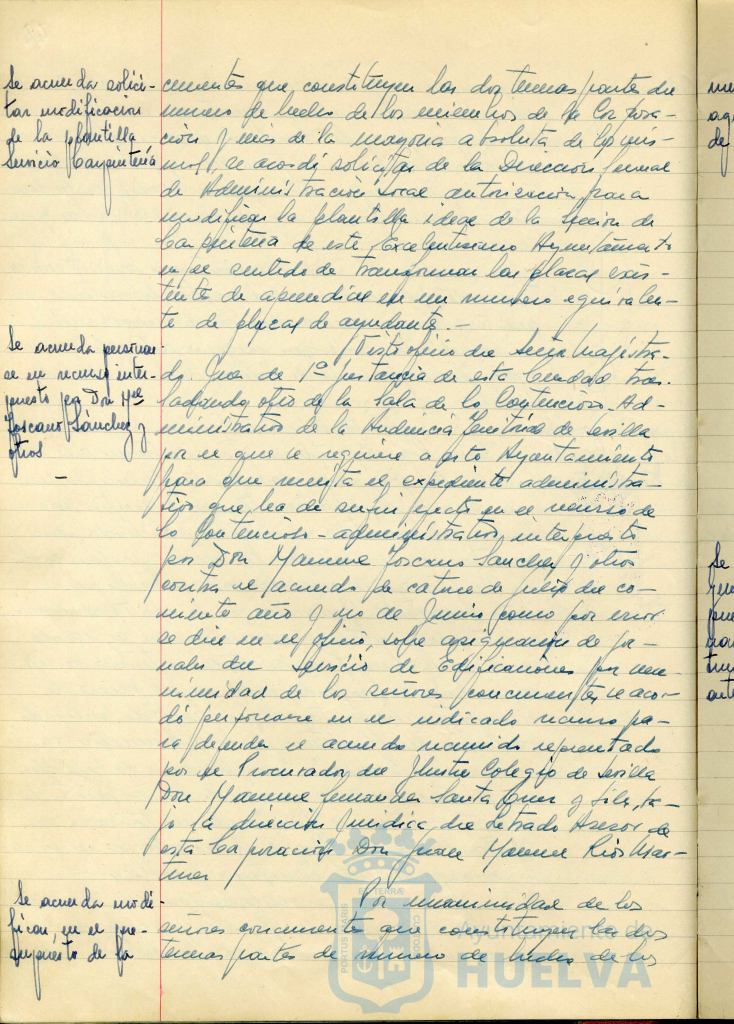 Se acuerda solici-
tar modificacion
de la plantilla
Servicio Carpinteria
currentes que constituyen las dos terceras partes del
numero de hecho de los miembros de la Corpora-
ción y más de la mayoria absoluta de los mis-
mos, se acordó solicitar de la Dirección General
de Administración Local autorización para
modificar la plantilla ideal de la Sección de
Carpinteria de este Excelentisimo Ayuntamiento
en el sentido de transformar las plazas exis-
tentes de aprendices en un numero equivalen-
te de plazas de ayudante.-
Se acuerda personar
se en recurso inter-
puesto por Don Mel
Toscano Sánchez y
otros
Visto oficio del Señor Magistra-
do Juez de 1ª Instancia de esta Ciudad tras-
ladando otro de la Sala de lo Contencioso-Ad-
ministrativo de la Audiencia Territorial de Sevilla
por el que se requiere a este Ayuntamiento
para que remita el expediente administra-
tivo que ha de surtir efecto en el recurso de
lo Contencioso-administrativo interpuesto
por Don Manuel Toscano Sanchez y otros
contra el acuerdo de catorce de julio del co-
rriente año y no de Junio como por error
se dice en el oficio, sobre asignación de jor-
nales del Servicio de Edificaciones por una-
nimidad de los señores concurrentes se acor-
dó personarse en el indicado recurso pa-
ra defender el acuerdo recurrido representado
por el Procurador del Ilustre Colegio de Sevilla
Don Manuel Santa Cruz y ba-
jo la dirección juridica del Letrado Asesor de
esta Corporación Don Juan Manuel Rios Mar-
tinez
Se acuerda modi-
ficar, en el pre-
supuesto de la
Por unanimidad de los
señores concurrentes que constituyen las dos
terceras partes de numero de hecho de los
PORTUS MARIS
ET TERRAE
CUSTODIA
Ayuntamiento de
HUELVA